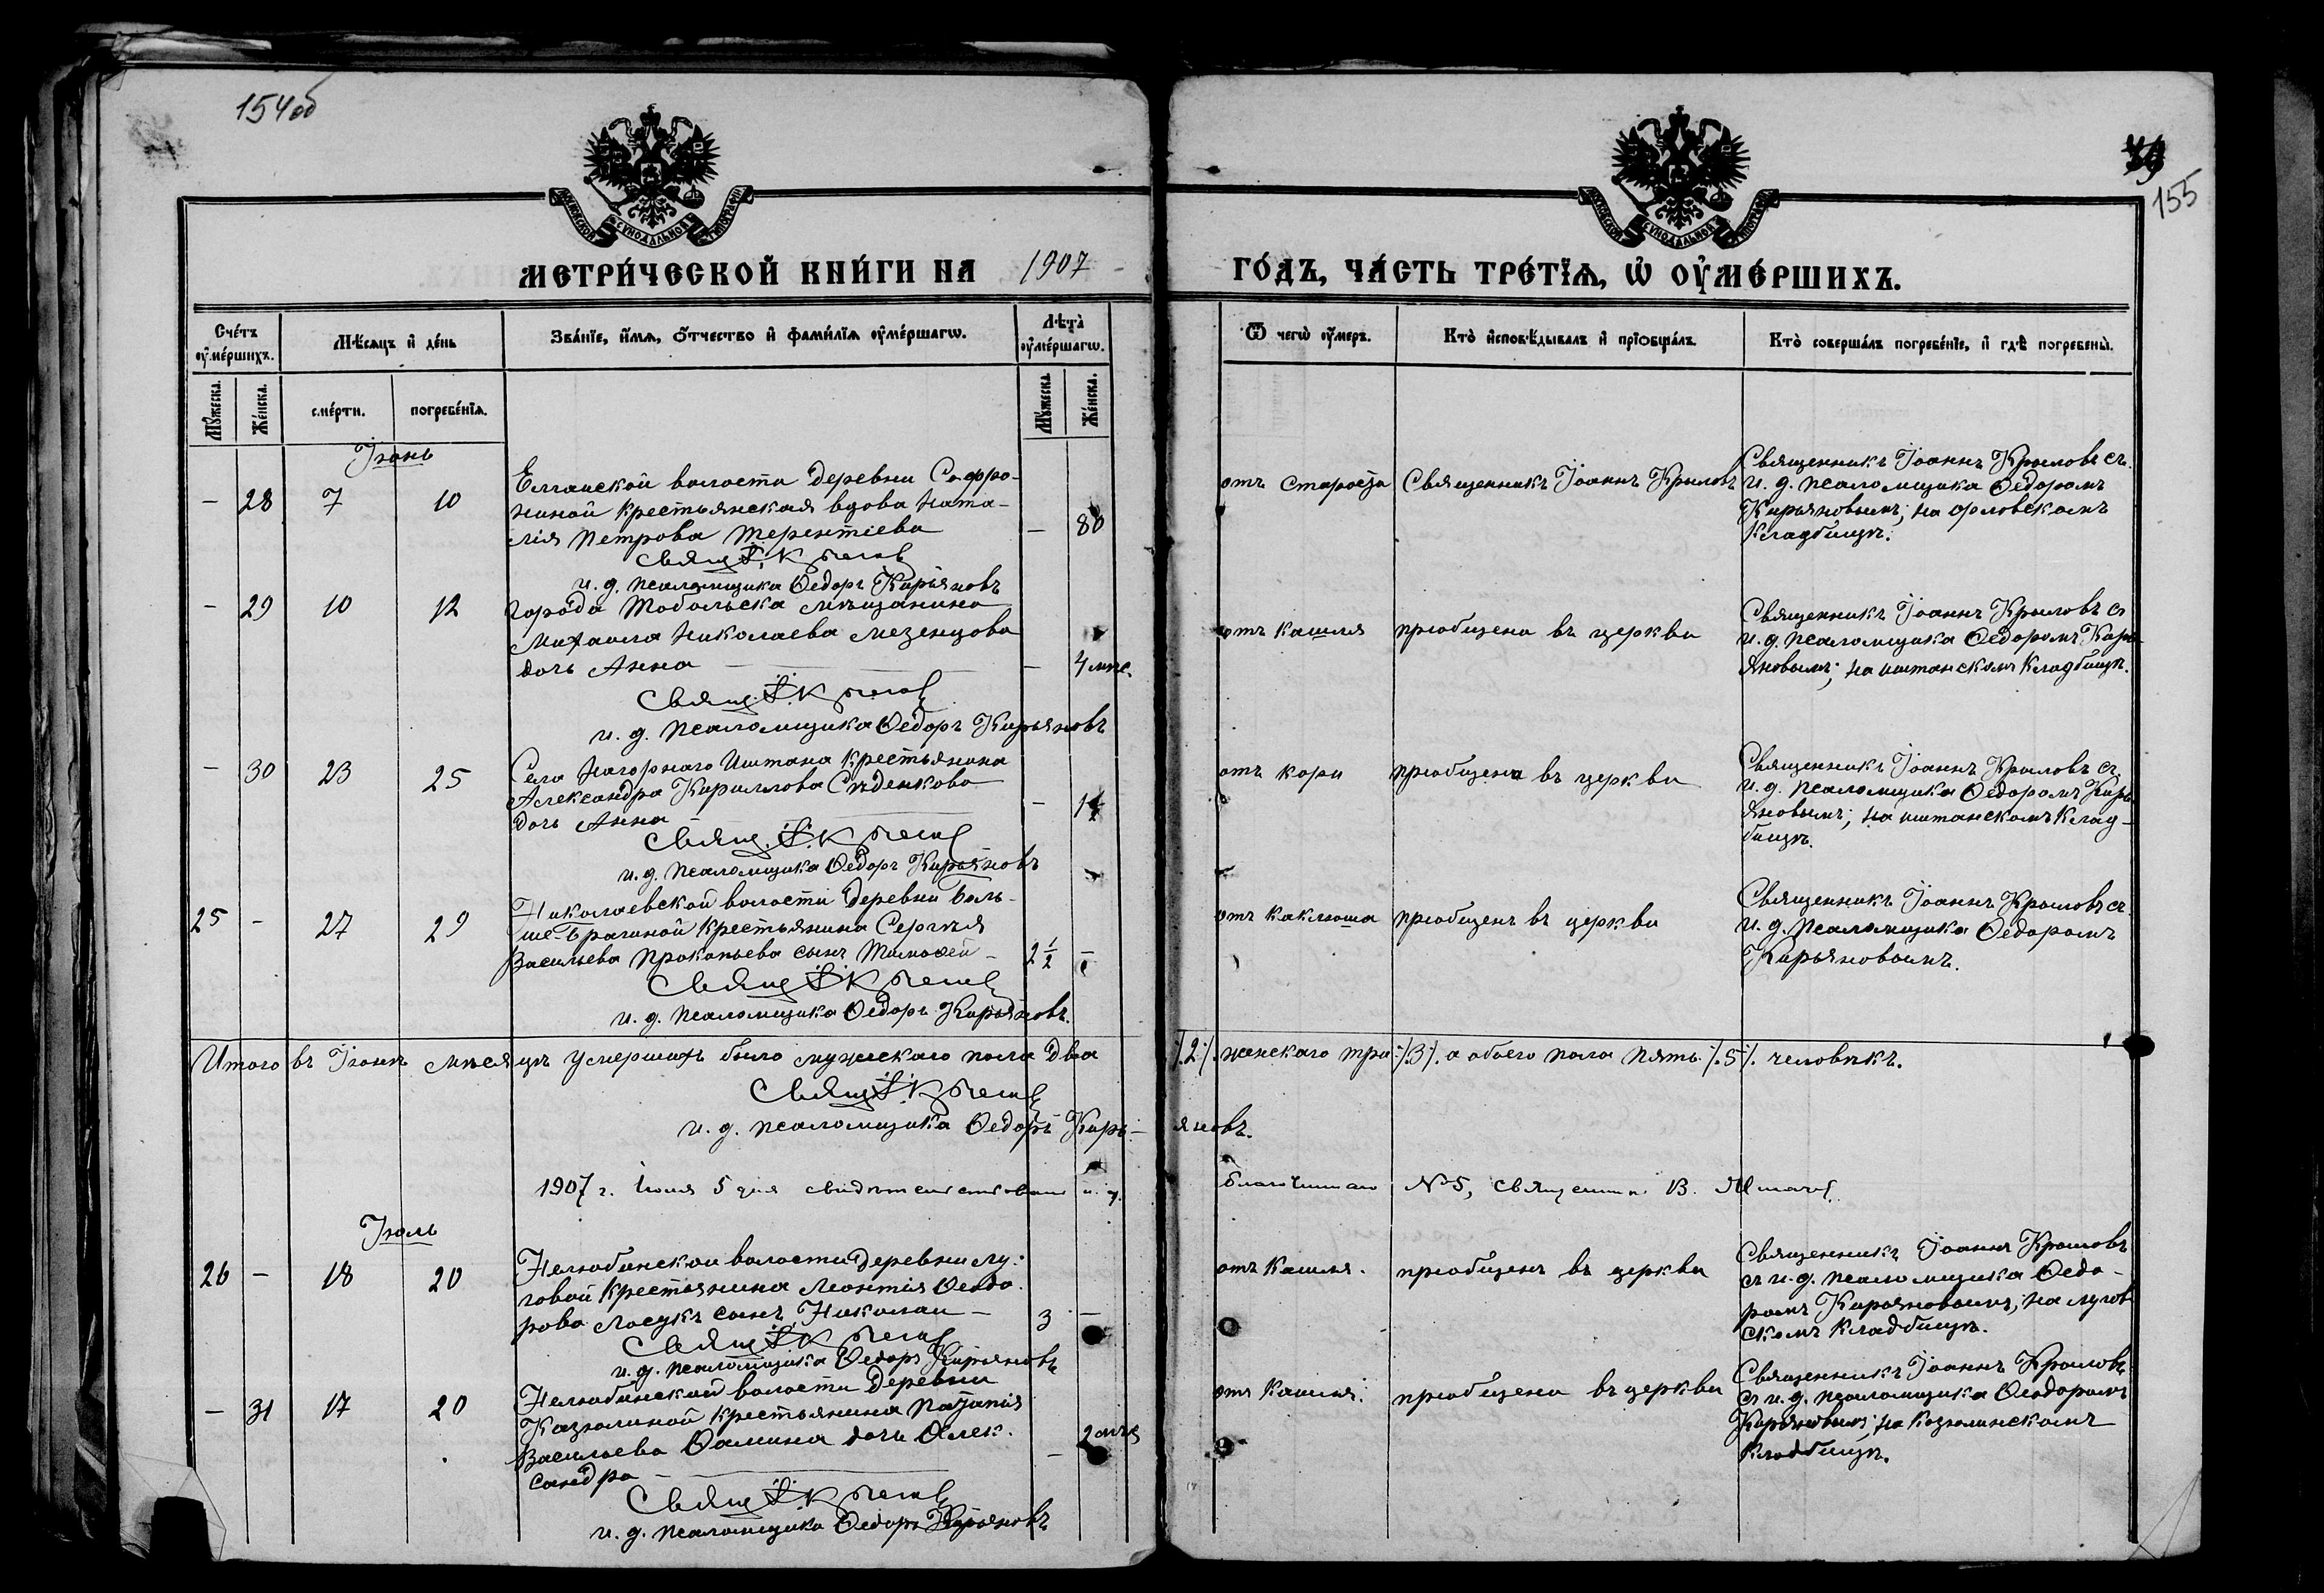 154об
155
МОСКОВСКОЙ СУНОДАЛЬНОЙ ТИПОГРАФІИ
МОСКОВСКОЙ СУНОДАЛЬНОЙ ТИПОГРАФІИ
МЕТРИ́ЧЕСКОЙ КНИ́ГИ НА 1907 ГО́ДЪ, ЧА́СТЬ ТРЕ́ТІѦ, Ѡ ОУ҆МЕ́РШИХЪ.
Сче́тъ оу҆ме́ршихъ.
Мѣ́сѧцъ и҆ де́нь
Зва́нїе, и҆́мѧ, о҆́тчество и҆ фами́лїѧ оу҆ме́ршагѡ.
Лѣта̀ оу҆ме́ршагѡ.
Ѿ чегѡ̀ оу҆́меръ.
Кто̀ и҆сповѣ́дывалъ и҆ прїѡбща́лъ.
Кто̀ соверша́лъ погребе́нїе, и҆ гдѣ̀ погребены̀.
Мꙋ́жеска. Же́нска. сме́рти. погребе́нїѧ. Мꙋ́жеска. Же́нска.
Іюнь
— 28 7 10
Елганской волости деревни Софро-
ниной крестьянская вдова Ната-
лія Петрова Терентіева — 80
Свящ. І. Крылов
и. д. псаломщика Ѳедоръ Кирьяновъ
отъ старости
Священникъ Іоаннъ Крыловъ
Священникъ Іоаннъ Крыловъ съ
и. д. псаломщика Ѳедоромъ
Кирьяновымъ; на орловскомъ
кладбищѣ.
— 29 10 12
города Тобольска мѣщанина
Михаила Николаева Мезенцова
дочь Анна — — 4 мѣс.
Свящ. І. Крылов
и. д. псаломщика Ѳедоръ Кирьяновъ
отъ кашля
пріобщена въ церкви
Священникъ Іоаннъ Крыловъ съ
и. д. псаломщика Ѳедоромъ Кирь-
яновымъ; на иштанскомъ кладбищѣ.
— 30 23 25
Села Нагорнаго Иштана крестьянина
Александра Кириллова Сѣденкова
дочь Анна —
Свящ. І. Крылов
и. д. псаломщика Ѳедоръ Кирьяновъ
отъ кори
пріобщена въ церкви
Священникъ Іоаннъ Крыловъ съ
и. д. псаломщика Ѳедоромъ Кирь-
яновымъ; на иштанскомъ клад-
бищѣ.
25 — 27 29
Николаевской волости деревни Боль-
ше-Брагиной крестьянина Сергѣя
Васильева Прокопьева сынъ Тимоѳей — 2 1/2 —
Свящ. І. Крылов
и. д. псаломщика Ѳедоръ Кирьяновъ.
отъ каклюша
пріобщенъ въ церкви
Священникъ Іоаннъ Крыловъ съ
и. д. псаломщика Ѳедоромъ
Кирьяновымъ.
Итого въ Іюнѣ мѣсяцѣ умершихъ было мужскаго пола два /.2./. женскаго три /.3./. а обоего пола пять /.5./. человѣкъ.
Свящ. І. Крылов
и. д. псаломщика Ѳедоръ Кирь-яновъ.
1907 г. Іюля 5 дня свидѣтельствовалъ и. д. благочиннаго №5, священникъ В.
Іюль
26 — 18 20
Нелюбинской волости деревни Лу-
говой крестьянина Леонтія Ѳедо-
роваЛасукъ сынъ Николай — 3 —
Свящ. І. Крылов
и. д. псаломщика Ѳедоръ Кирьяновъ
отъ кашля.
пріобщенъ въ церкви
Священникъ Іоаннъ Крыловъ
съ и. д. псаломщика Ѳедо-
ромъ Кирьяновымъ; на лугов-
скомъ кладбищѣ.
— 31 17 20
Нелюбинской волости деревни
Казюлиной крестьянина Потапія
Васильева Ѳомина дочь Алек-
сандра — — 2 мѣс
Свящ. І. Крылов
и. д. псаломщика Ѳедоръ Кирьяновъ
отъ кашля.
пріобщена въ церкви
Священникъ Іоаннъ Крыловъ
съ и. д. псаломщика Ѳеодоромъ
Кирьяновымъ; на Козюлинскомъ
кладбищѣ.